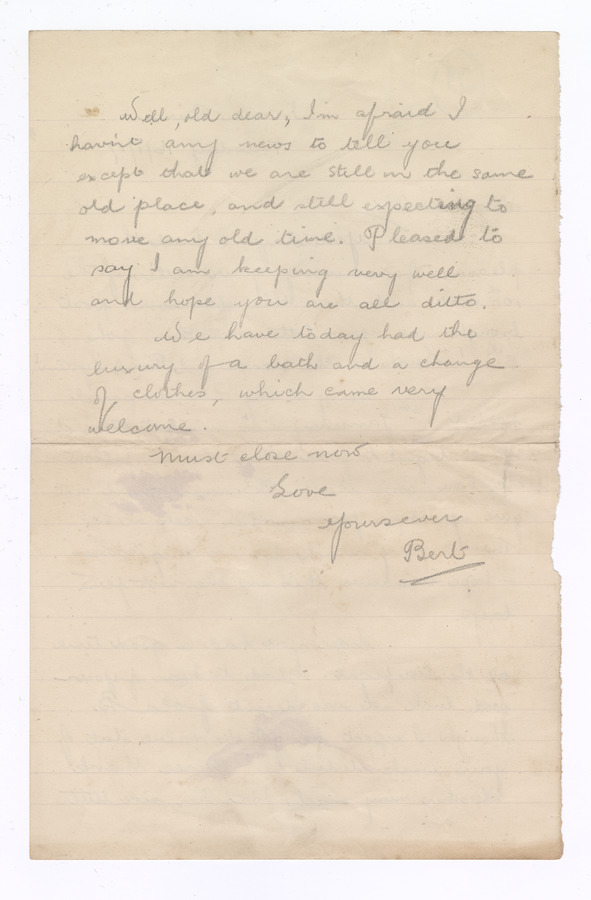 Well, old dear, I'm afraid I
havn't any news to tell you
except that we are still in the same
old place, and still expecting to
move any old time. Pleased to
say I am keeping very well
and hope you are all ditto.
We have today had the
luxury of a bath and a change
of clothes, which came very
welcome.
Must close now
Love
Yours ever
Bert